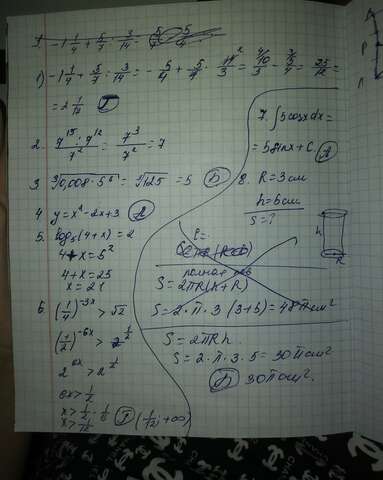 1. -1 1/4 + 5/7 : 3/14 =
1) -1 1/4 + 5/7 : 3/14 = - 5/4 + 5/7 · 14/3 = 10/3 - 5/4 = 25/12 =
= 2 1/12 Г
2. 7^15 : 7^12 / 7^2 = 7^3 / 7^2 = 7
3. ∛0,008·5^6 = ∛125 = 5 Б
4. y = x² - 2x + 3 А
5. log₅(4+x) = 2
4 + x = 5²
4 + x = 25
x = 21
6. (1/4)^-3x > √2
(1/2)^-6x > 2^1/2
2^6x > 2^1/2
6x > 1/2
x > 1/2 · 1/6
x > 1/12 Г (1/12; +∞)
7. ∫5cosxdx =
= 5sinx + C. А
8. R = 3 см
h = 5 см
S = ?
h
R
S = 2πR(h+R)
S = 2·π·3(3+5) = 48π см²
S = 2πRh
S = 2·π·3·5 = 30π см²
Б 30π см².